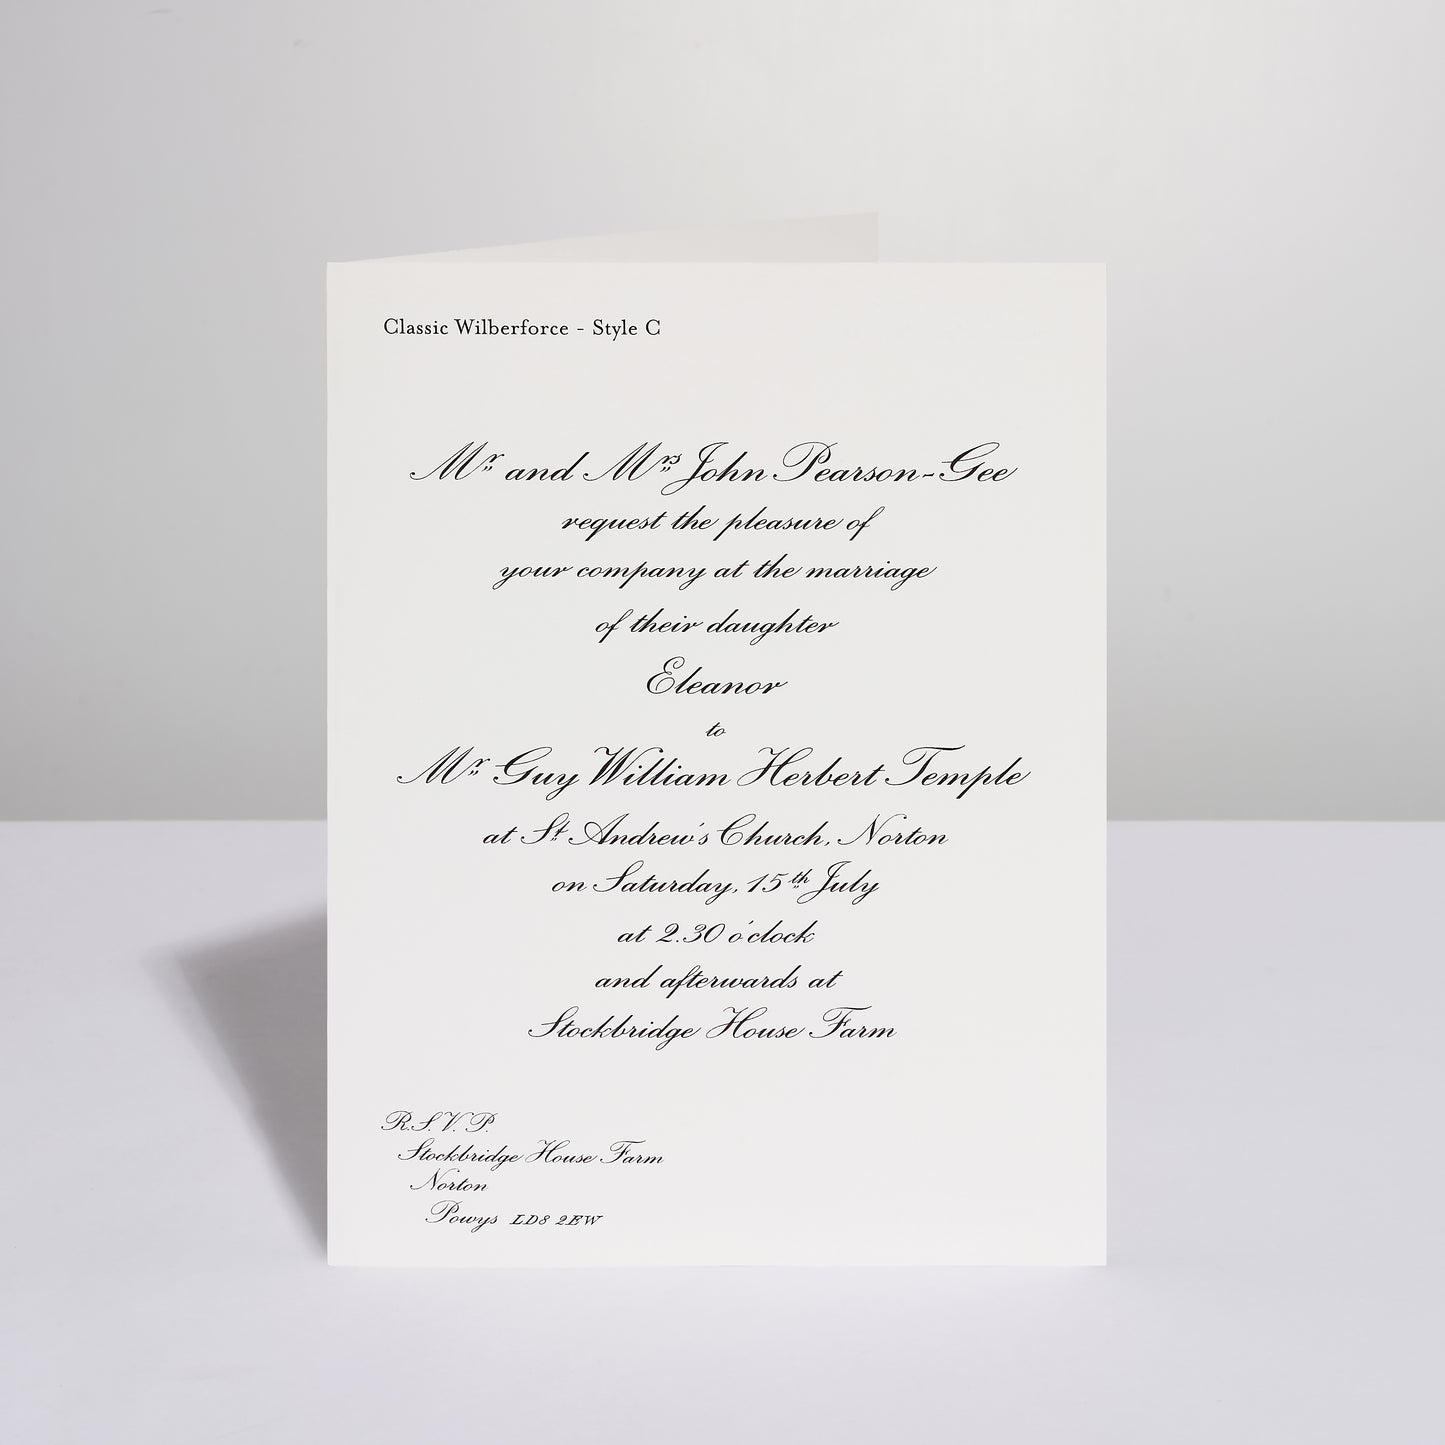 Classic Wilberforce - Style C
Mr and Mrs John Pearson-Gee
request the pleasure of
your company at the marriage
of their daughter
Eleanor
to
Mr Guy William Herbert Temple
at St Andrew's Church, Norton
on Saturday, 15th July
at 2.30 o'clock
and afterwards at
Stockbridge House Farm
R.S.V.P.
Stockbridge House Farm
Norton
Powys LD8 2EW